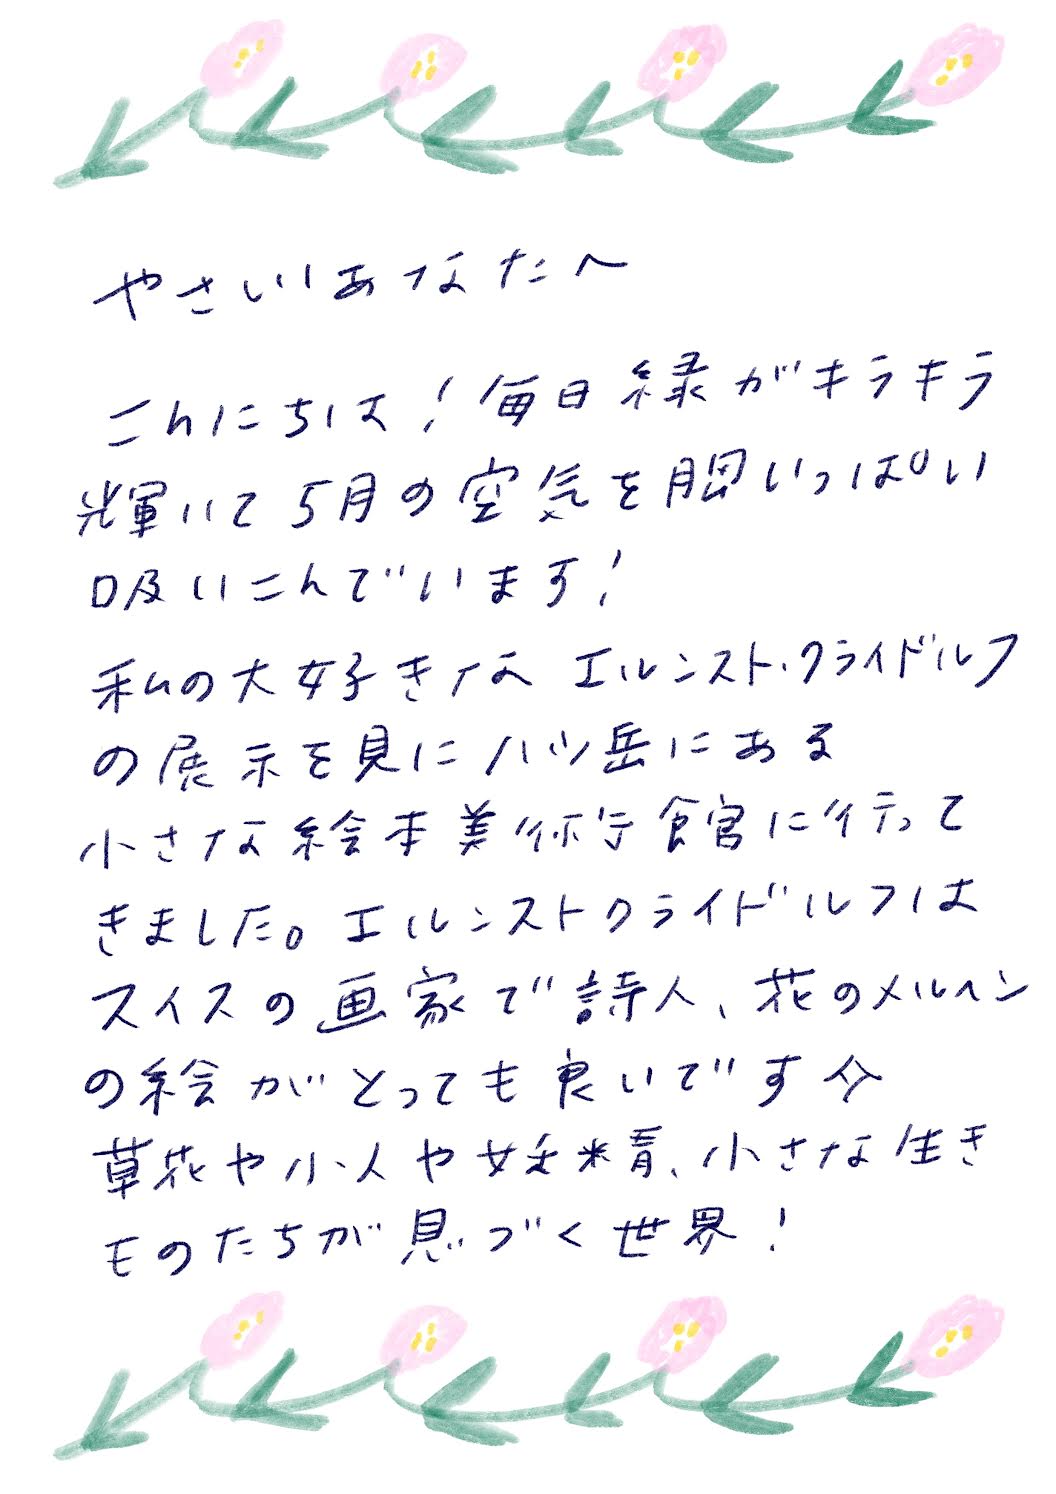 やさしいあなたへ
こんにちは！毎日緑がキラキラ
輝いて5月の空気を胸いっぱい
吸いこんでいます！
私の大好きな エルンスト・クライドルフ
の展示を見に八ツ岳にある
小さな絵本美術館に行って
きました。エルンストクライドルフは
スイスの画家で詩人、花のメルヘン
の絵がとっても良いです☆
草花や小人や妖精、小さな生き
ものたちが息づく世界！